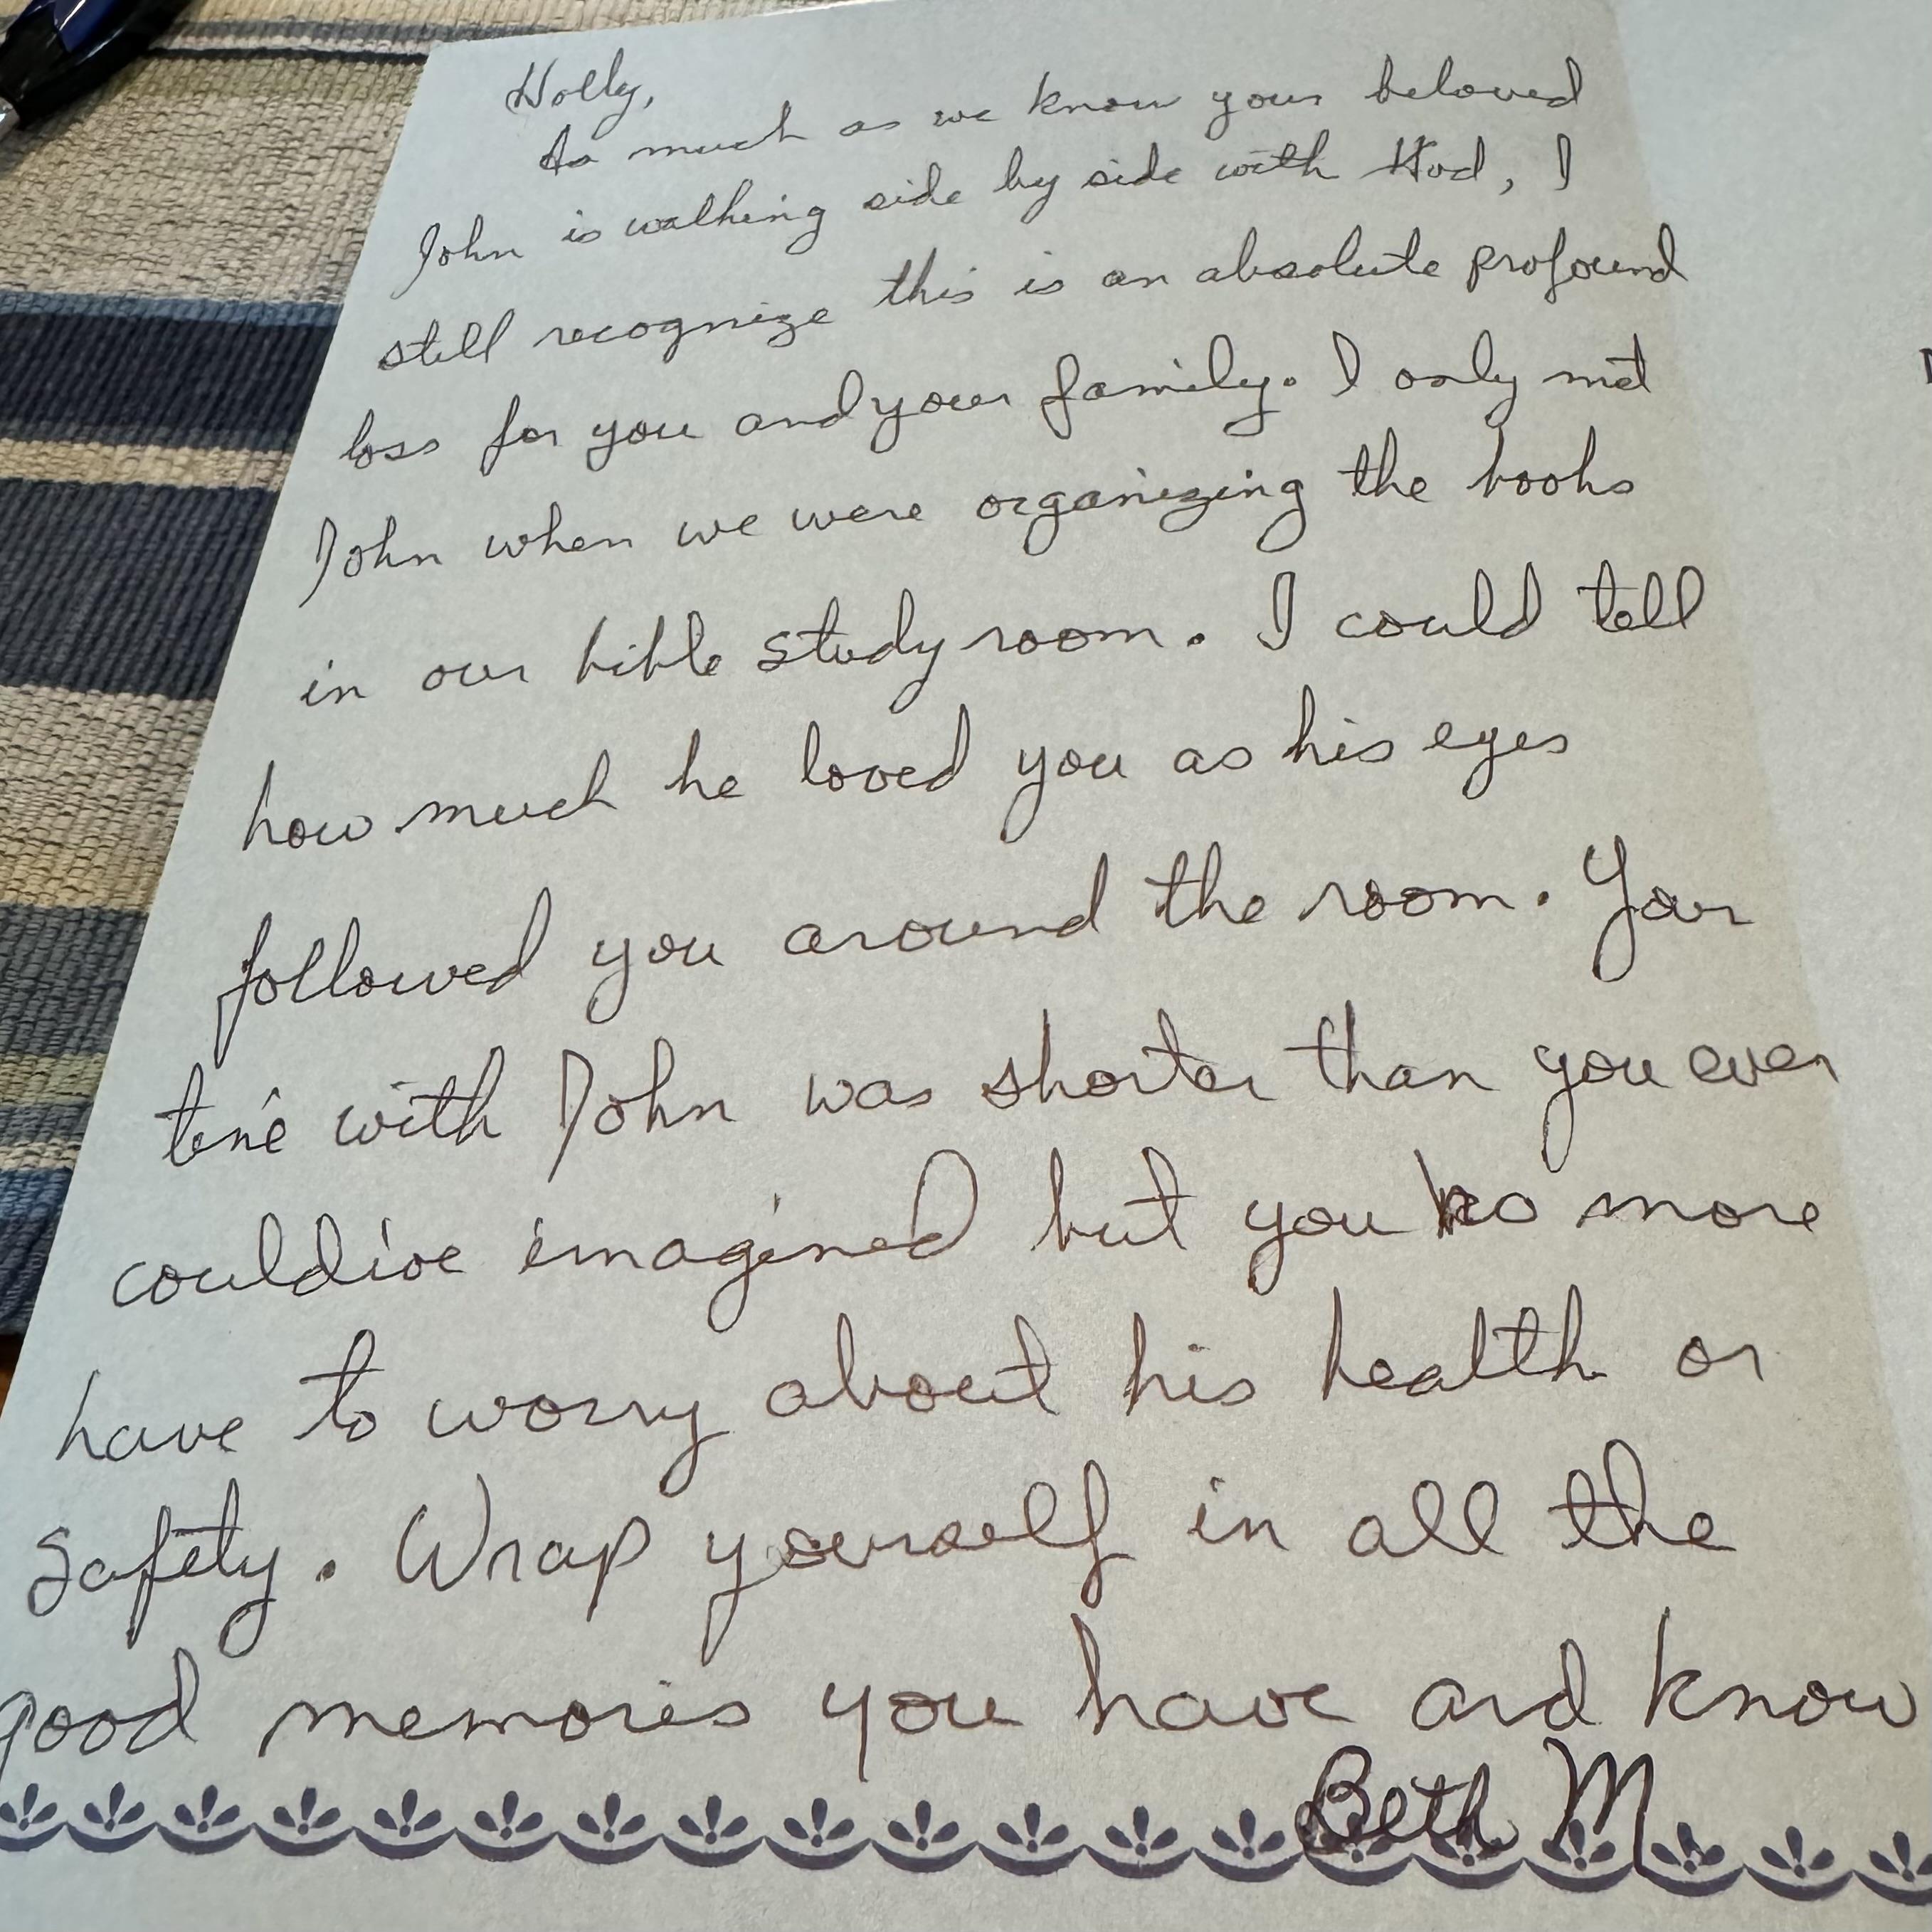 Holly,
As much as we know your beloved
John is walking side by side with God, I
still recognize this is an absolute profound
loss for you and your family. I only met
John when we were organizing the books
in our bible study room. I could tell
how much he loved you as his eyes
followed you around the room. Your
time with John was shorter than you ever
could've imagined but you no more
have to worry about his health or
safety. Wrap yourself in all the
good memories you have and know
Beth M.